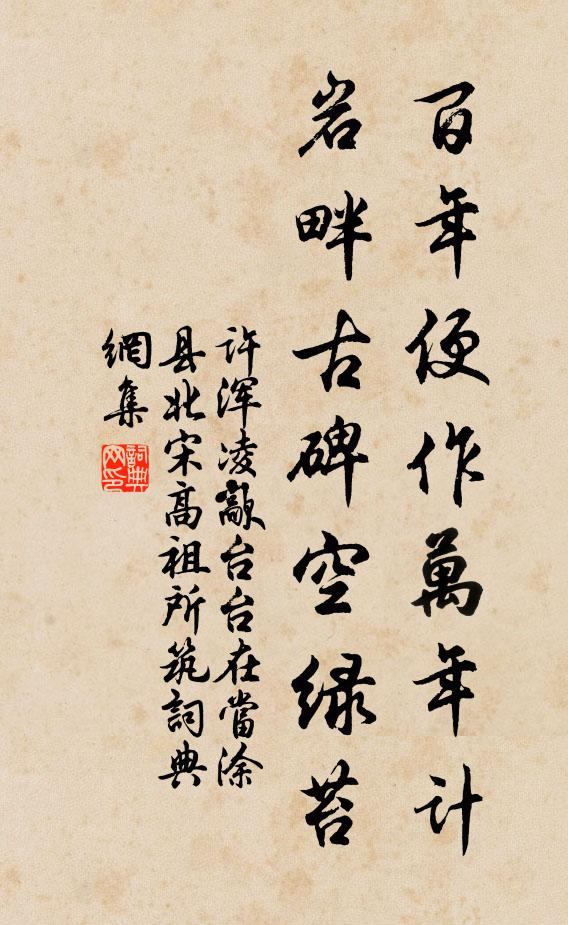 百年便作萬年計
岩畔古碑空绿苔
许渾凌歊台台在當涂
县北宋高祖所筑詞典
網集
詞典網印